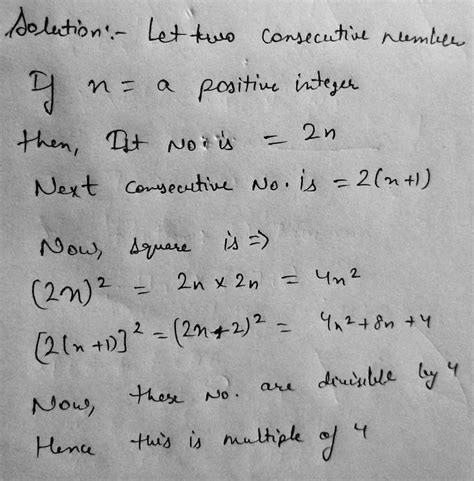 Solution:- Let two consecutive number
If n = a positive integer
then, Ist No. is = 2n
Next consecutive No. is = 2(n+1)
Now, square is ⇒
(2n)² = 2n × 2n = 4n²
[2(n+1)]² = (2n+2)² = 4n²+8n+4
Now, these No. are divisible by 4
Hence this is multiple of 4